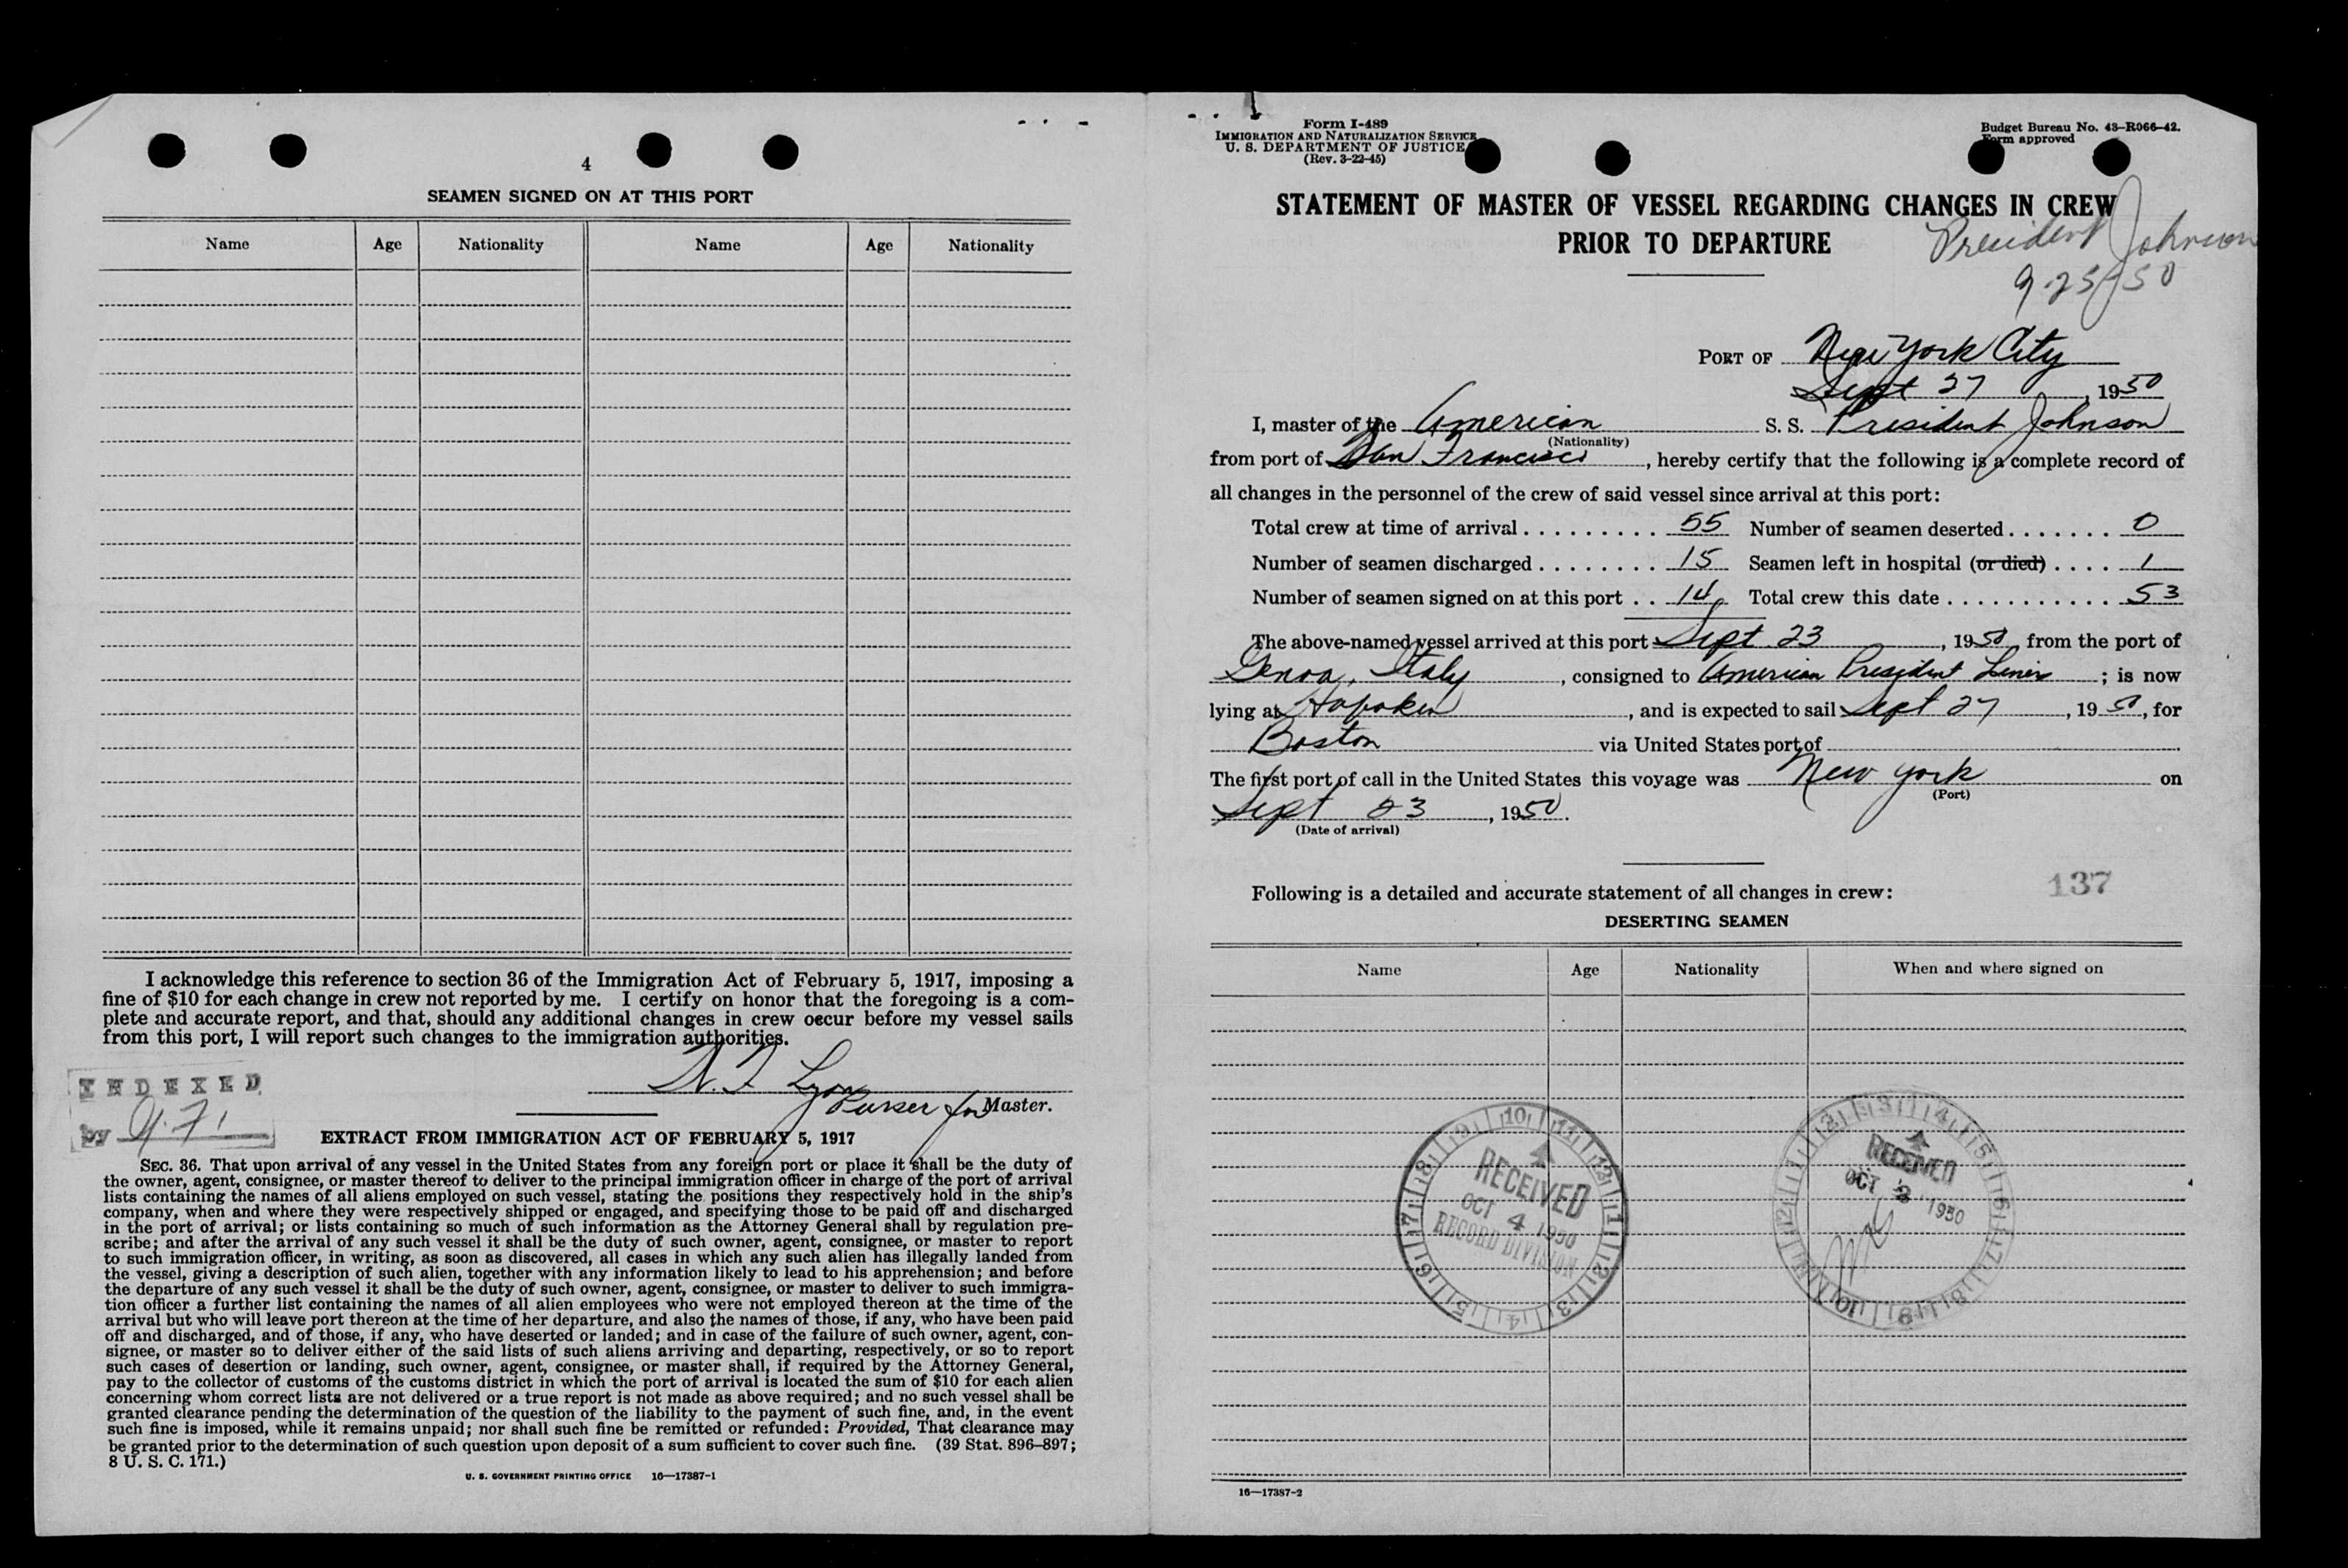 4
SEAMEN SIGNED ON AT THIS PORT
Name Age Nationality Name Age Nationality
I acknowledge this reference to section 36 of the Immigration Act of February 5, 1917, imposing a
fine of $10 for each change in crew not reported by me. I certify on honor that the foregoing is a com-
plete and accurate report, and that, should any additional changes in crew occur before my vessel sails
from this port, I will report such changes to the immigration authorities.
Lyon
Purser for Master.
INDEXED
by
EXTRACT FROM IMMIGRATION ACT OF FEBRUARY 5, 1917
SEC. 36. That upon arrival of any vessel in the United States from any foreign port or place it shall be the duty of
the owner, agent, consignee, or master thereof to deliver to the principal immigration officer in charge of the port of arrival
lists containing the names of all aliens employed on such vessel, stating the positions they respectively hold in the ship's
company, when and where they were respectively shipped or engaged, and specifying those to be paid off and discharged
in the port of arrival; or lists containing so much of such information as the Attorney General shall by regulation pre-
scribe; and after the arrival of any such vessel it shall be the duty of such owner, agent, consignee, or master to report
to such immigration officer, in writing, as soon as discovered, all cases in which any such alien has illegally landed from
the vessel, giving a description of such alien, together with any information likely to lead to his apprehension; and before
the departure of any such vessel it shall be the duty of such owner, agent, consignee, or master to deliver to such immigra-
tion officer a further list containing the names of all alien employees who were not employed thereon at the time of the
arrival but who will leave port thereon at the time of her departure, and also the names of those, if any, who have been paid
off and discharged, and of those, if any, who have deserted or landed; and in case of the failure of such owner, agent, con-
signee, or master so to deliver either of the said lists of such aliens arriving and departing, respectively, or so to report
such cases of desertion or landing, such owner, agent, consignee, or master shall, if required by the Attorney General,
pay to the collector of customs of the customs district in which the port of arrival is located the sum of $10 for each alien
concerning whom correct lists are not delivered or a true report is not made as above required; and no such vessel shall be
granted clearance pending the determination of the question of the liability to the payment of such fine, and, in the event
such fine is imposed, while it remains unpaid; nor shall such fine be remitted or refunded: Provided, That clearance may
be granted prior to the determination of such question upon deposit of a sum sufficient to cover such fine. (39 Stat. 896–897;
8 U. S. C. 171.)
U. S. GOVERNMENT PRINTING OFFICE 16—17387-1
Form I-489
IMMIGRATION AND NATURALIZATION SERVICE
U. S. DEPARTMENT OF JUSTICE
(Rev. 3-22-45)
Budget Bureau No. 43-R066-42.
Form approved
STATEMENT OF MASTER OF VESSEL REGARDING CHANGES IN CREW
PRIOR TO DEPARTURE
President Johnson
9-25-50
PORT OF New York City
Sept 27, 1950
I, master of the American S. S. President Johnson
(Nationality)
from port of San Francisco, hereby certify that the following is a complete record of
all changes in the personnel of the crew of said vessel since arrival at this port:
Total crew at time of arrival . . . . . . . . . . 55 Number of seamen deserted . . . . . . . 0
Number of seamen discharged . . . . . . . . 15 Seamen left in hospital (or died) . . . . 1
Number of seamen signed on at this port . . 14 Total crew this date . . . . . . . . . . . . 53
The above-named vessel arrived at this port Sept 23, 1950 from the port of
Genoa, Italy, consigned to American President Lines; is now
lying at Hoboken, and is expected to sail Sept 27, 1950, for
Boston via United States port of
The first port of call in the United States this voyage was New York on
(Port)
Sept 23, 1950.
(Date of arrival)
137
Following is a detailed and accurate statement of all changes in crew:
DESERTING SEAMEN
Name Age Nationality When and where signed on
RECEIVED
OCT 4 1950
RECORD DIVISION
RECEIVED
OCT 1950
16—17387-2